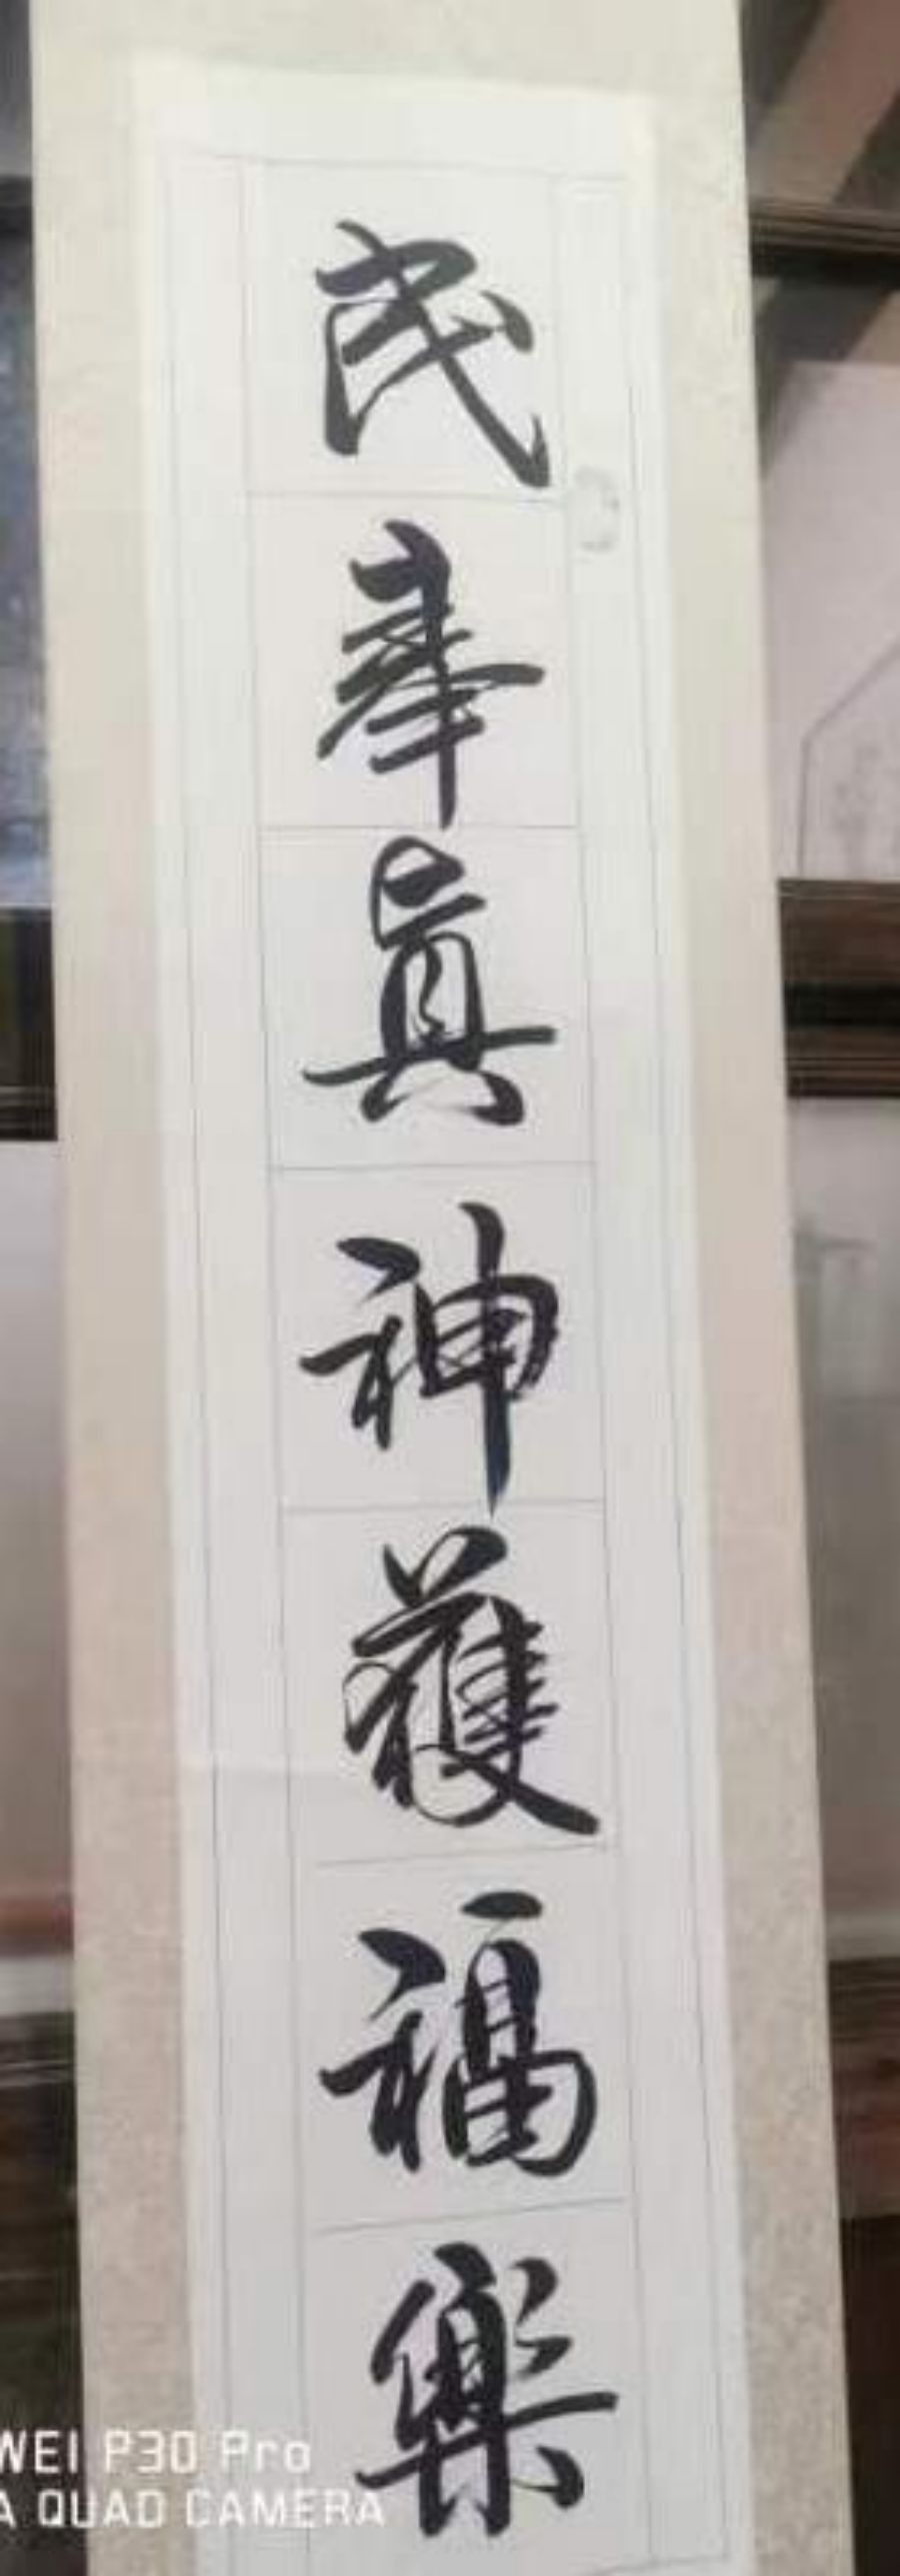 民奉真神獲福樂
WEI P30 Pro
A QUAD CAMERA